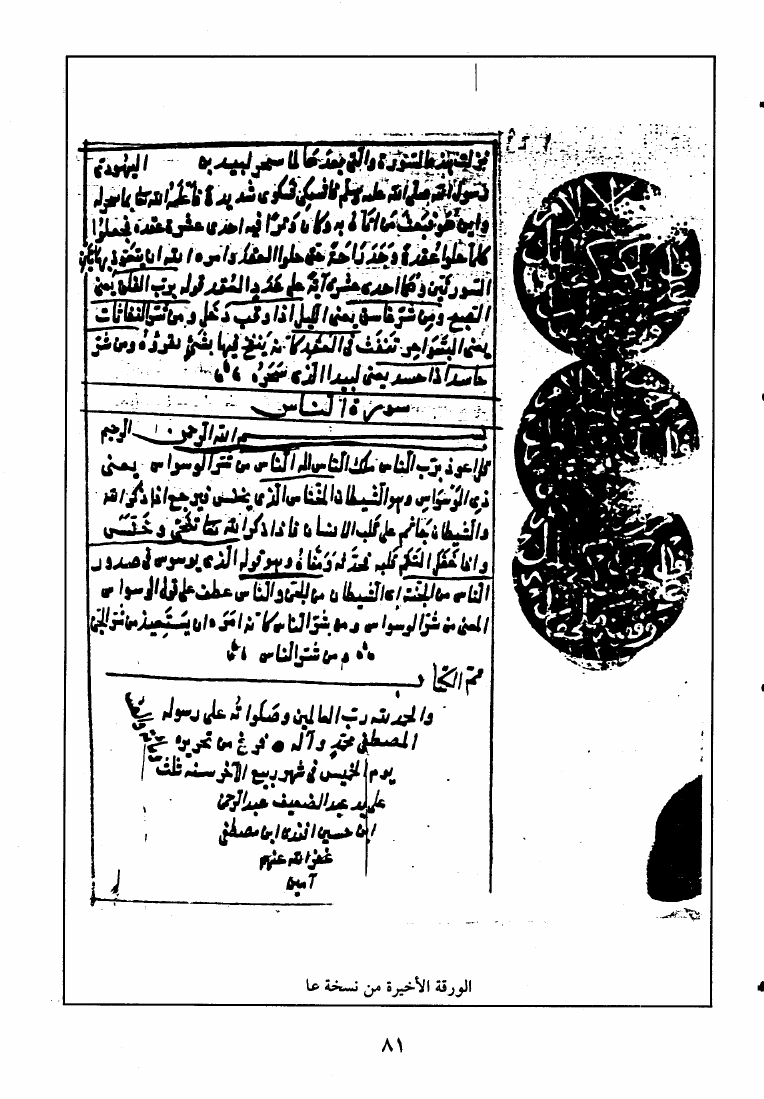 نزلت هذه السورة والتي بعدها لما سحر لبيد بن اليهودي
رسول الله صلى الله عليه وسلم فاشتكى شكوى شديدة فأعلمه الله تعالى بما سحر به
واين هو فبعث من اتاه به وكان وترا فيه احدى عشرة عقدة فجعلوا
كلما حلوا عقدة وجد راحة حتى حلوا العقد وامره الله ان يتعوذ بهاتين
السورتين وهما احدى عشرة آية على عدد العقد قوله برب الفلق يعني
الصبح ومن شر غاسق يعني الليل اذا وقب دخل ومن شر النفاثات
يعني السواحر تنفث في العقد كانه ينفخ فيها بشيء يقرؤه ومن شر
حاسد اذا حسد يعني لبيدا الذي سحره
سورة الناس
بسم الله الرحمن الرحيم
قل اعوذ برب الناس ملك الناس اله الناس من شر الوسواس يعني
ذي الوسواس وهو الشيطان الخناس الذي يخنس فيرجع اذا ذكر الله
والشيطان جاثم على قلب الانسان فاذا ذكر الله تعالى تنحى وخنس
واذا غفل التقم قلبه فحدثه ومناه وهو قوله الذي يوسوس في صدور
الناس من الجنة اي الشيطان من الجن والناس عطف على قوله الوسواس
المعنى من شر الوسواس ومن شر الناس كانه امره ان يستعيذ من شر الجن
ومن شر الناس
تم الكتاب
والحمد لله رب العالمين وصلواته على رسوله
المصطفى محمد وآله فرغ من تحريره
يوم الخميس في شهر ربيع الآخر سنه ثلث
على يد عبد الضعيف عبد الرحمن
ابن حسين افندى ابن مصطفى
غفر الله عنهم
آمين
الورقة الأخيرة من نسخة عا
٨١